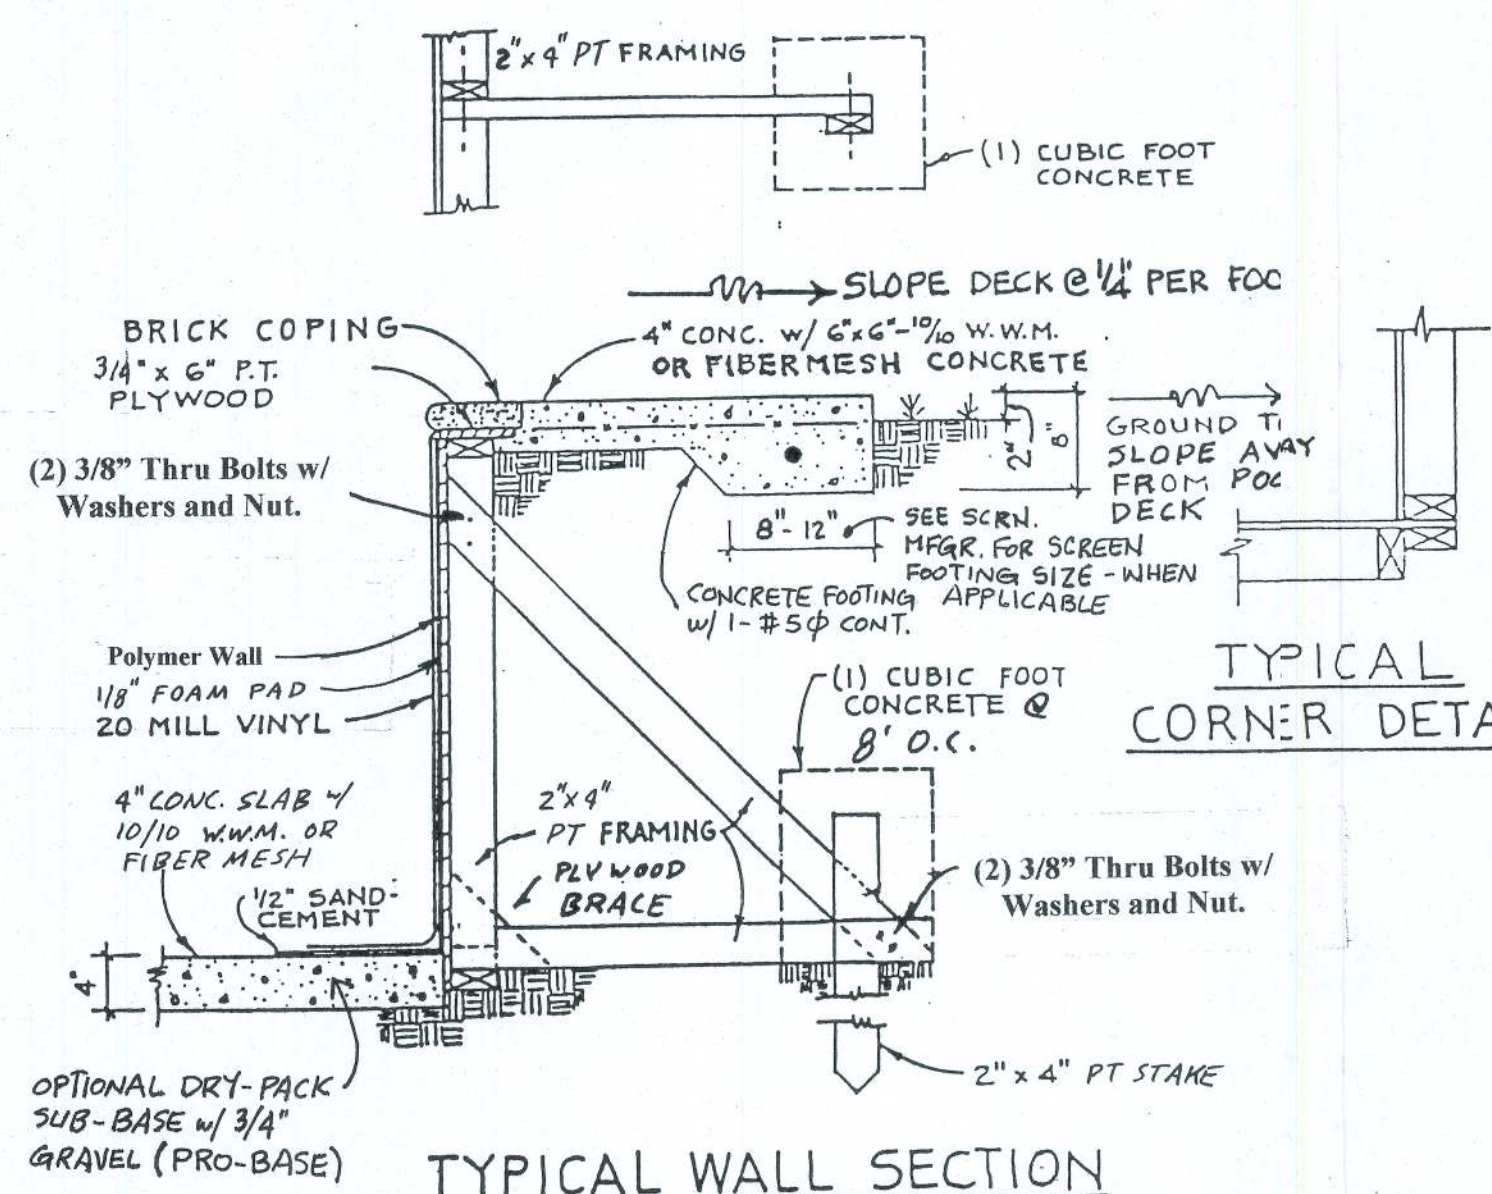 2"x 4" PT FRAMING
(1) CUBIC FOOT
CONCRETE
SLOPE DECK @ 1/4" PER FOO
BRICK COPING
4" CONC. w/ 6"x6"-10/10 W.W.M.
OR FIBERMESH CONCRETE
3/4" x 6" P.T.
PLYWOOD
(2) 3/8” Thru Bolts w/
Washers and Nut.
2"
8"
GROUND T
SLOPE AWAY
FROM POO
DECK
8"-12"
SEE SCRN.
MFGR. FOR SCREEN
FOOTING SIZE - WHEN
APPLICABLE
CONCRETE FOOTING
w/ 1- #5φ CONT.
Polymer Wall
1/8" FOAM PAD
20 MILL VINYL
(1) CUBIC FOOT
CONCRETE @
8' O.C.
TYPICAL
CORNER DETA
4" CONC. SLAB w/
10/10 W.W.M. OR
FIBER MESH
1/2" SAND-
CEMENT
2"x4"
PT FRAMING
PLYWOOD
BRACE
(2) 3/8” Thru Bolts w/
Washers and Nut.
4"
2" x 4" PT STAKE
OPTIONAL DRY-PACK
SUB-BASE w/ 3/4"
GRAVEL (PRO-BASE)
TYPICAL WALL SECTION